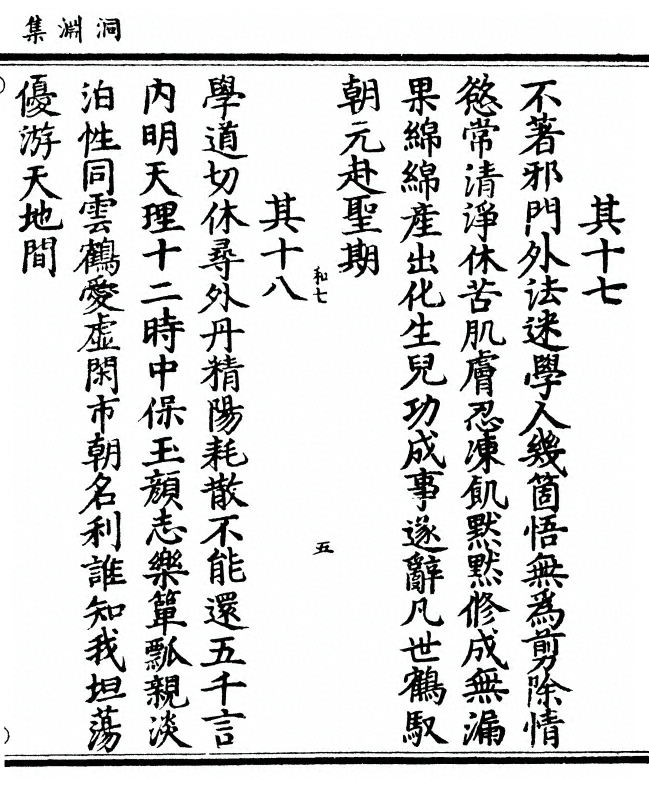 洞淵集
其十七
不著邪門外法迷學人幾箇悟無爲剪除情
慾常清淨休苦肌膚忍凍飢默默修成無漏
果綿綿產出化生兒功成事遂辭凡世鶴馭
朝元赴聖期
和七
五
其十八
學道切休尋外丹精陽耗散不能還五千言
內明天理十二時中保玉顏志樂簞瓢親淡
泊性同雲鶴愛虛閑市朝名利誰知我坦蕩
優游天地間